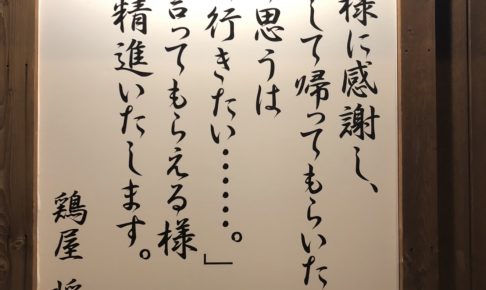 様に感謝し、
して帰ってもらいた
思うは
行きたい………。」
言ってもらえる様
精進いたします。
鶏屋